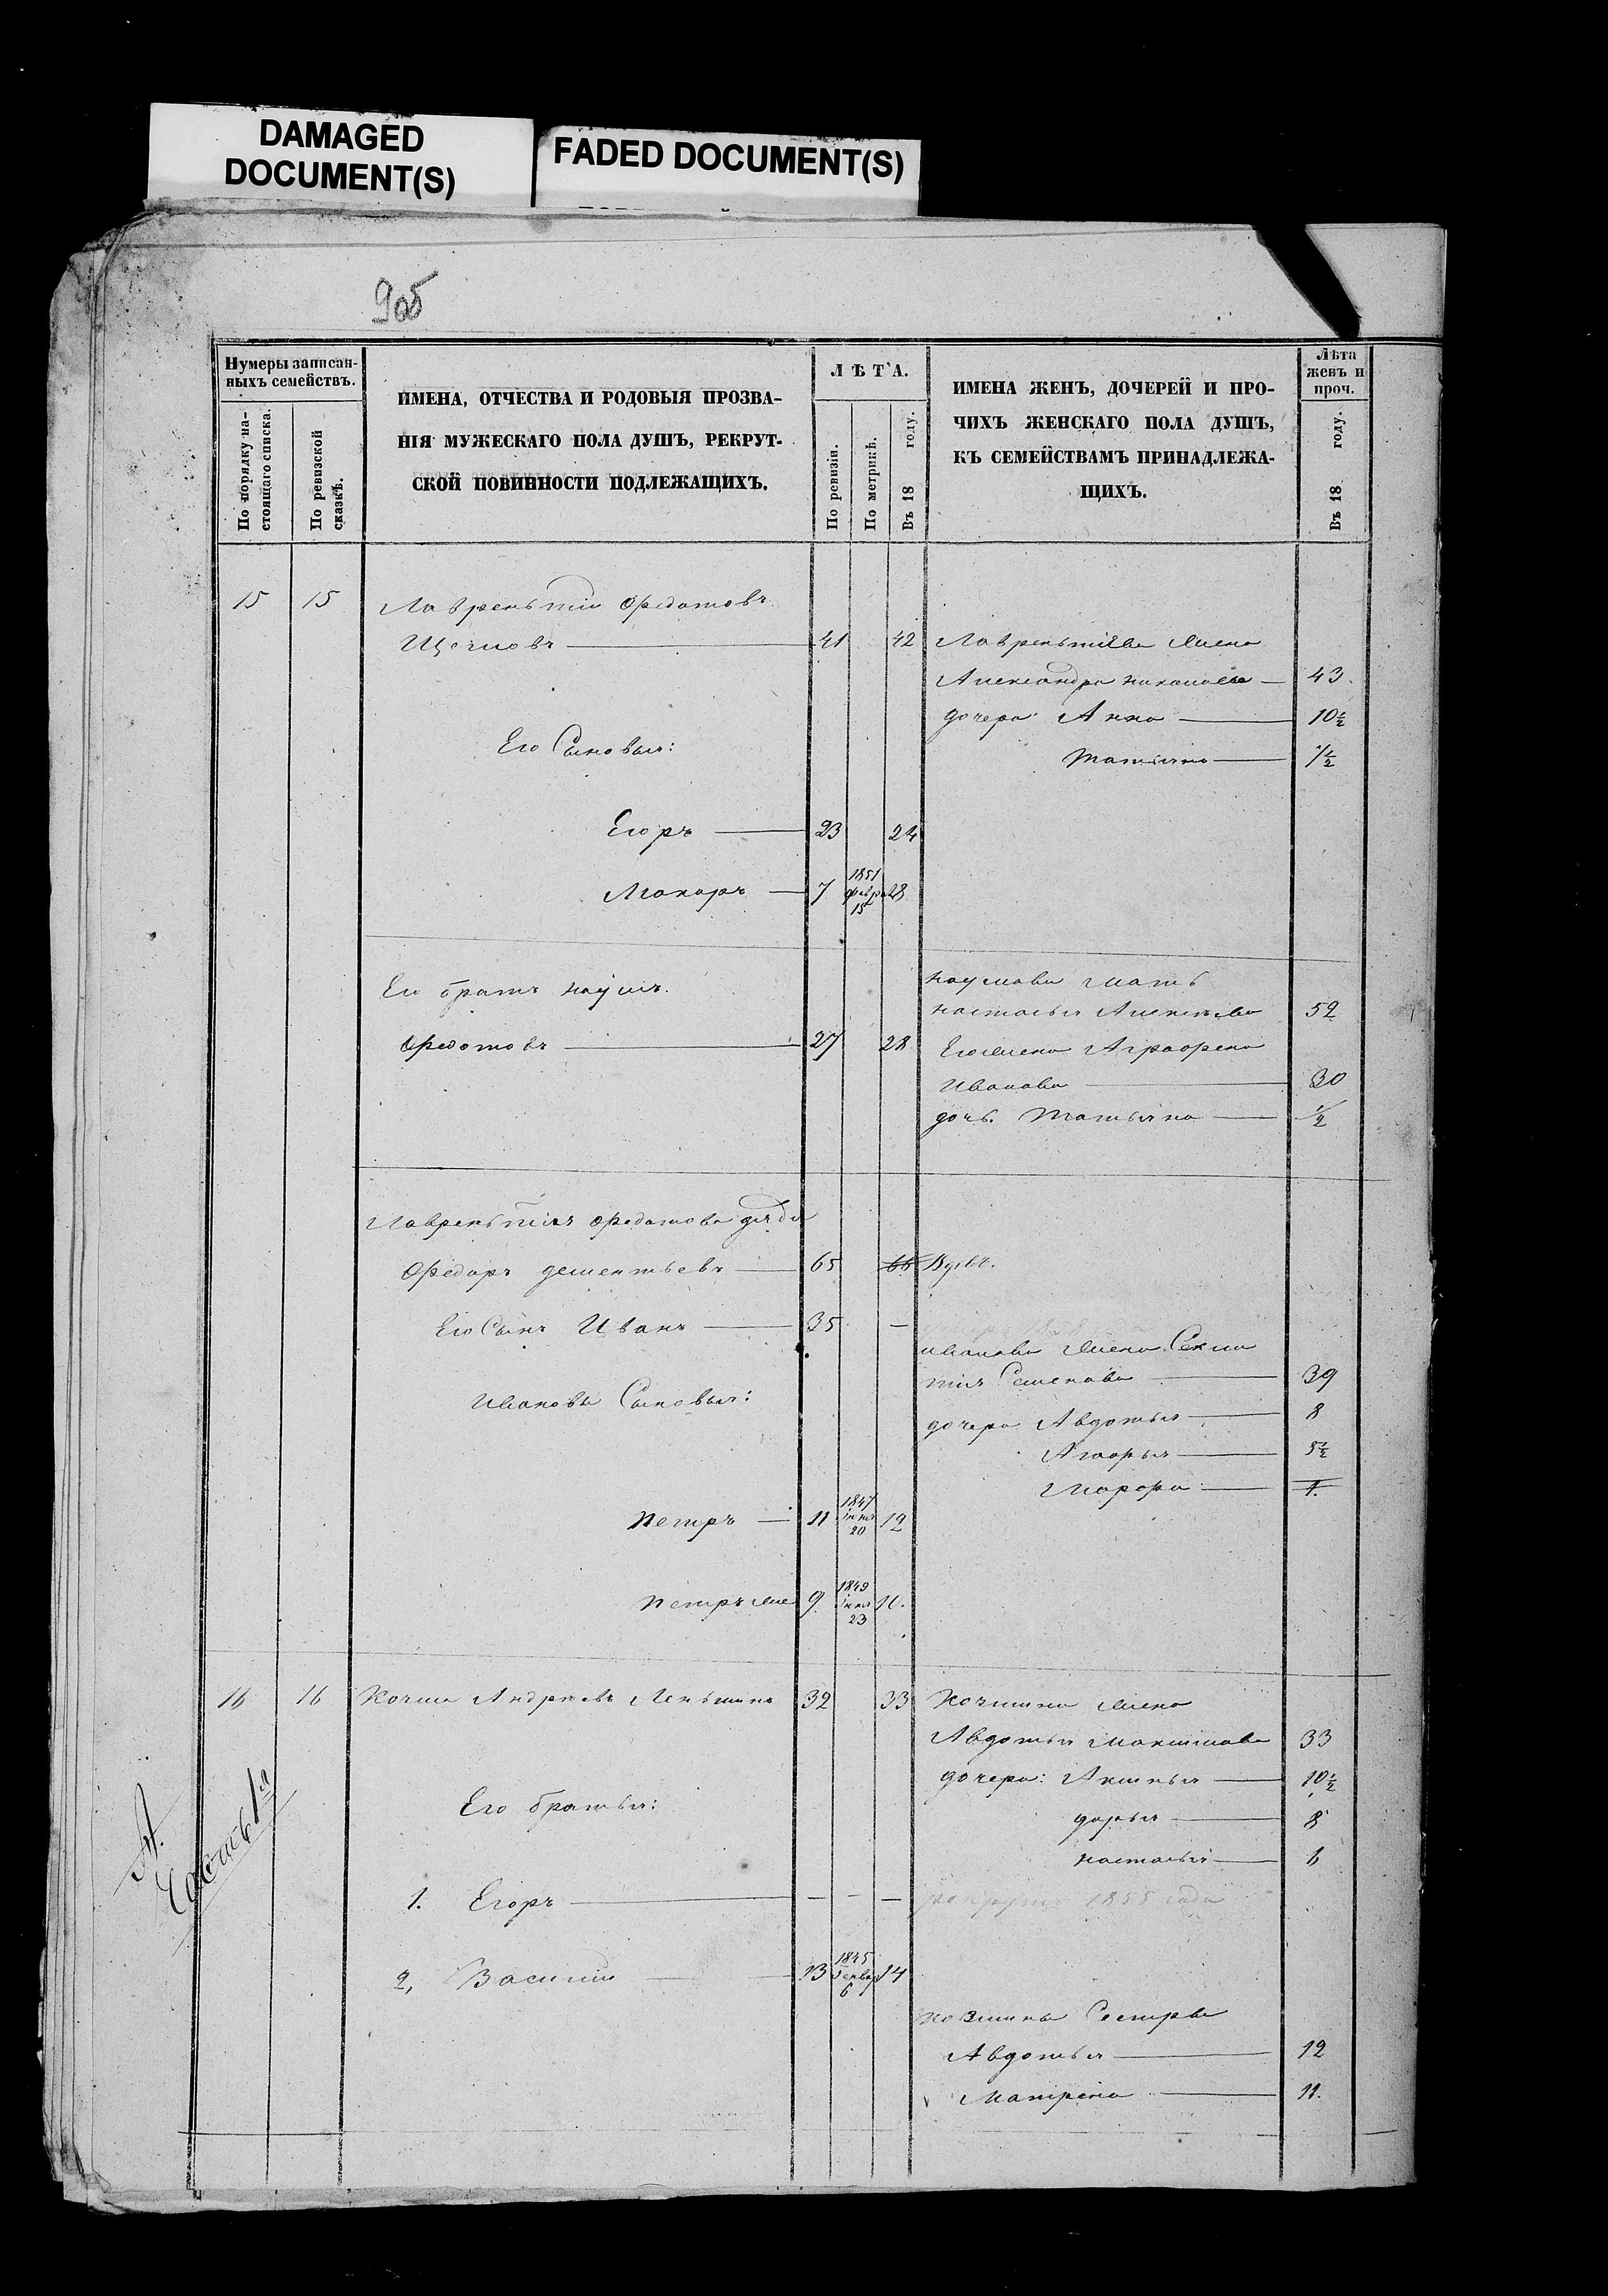 DAMAGED
DOCUMENT(S)
FADED DOCUMENT(S)
905
Нумеры записан-
ныхъ семействъ.
По порядку на-
стоящаго списка.
По ревизской
сказкѣ.
ИМЕНА, ОТЧЕСТВА И РОДОВЫЯ ПРОЗВА-
НІЯ МУЖЕСКАГО ПОЛА ДУШЪ, РЕКРУТ-
СКОЙ ПОВИННОСТИ ПОДЛЕЖАЩИХЪ.
ЛѢТА.
По ревизіи.
По метрикѣ.
Въ 18 году.
ИМЕНА ЖЕНЪ, ДОЧЕРЕЙ И ПРО-
ЧИХЪ ЖЕНСКАГО ПОЛА ДУШЪ,
КЪ СЕМЕЙСТВАМЪ ПРИНАДЛЕЖА-
ЩИХЪ.
Лѣта
женъ и
проч.
Въ 18 году.
15 15 Лаврентій Ѳедотовъ
41 42 Лаврентьева жена
Александра Николаева 43.
дочери: Анна 10½
Его Сыновья:
Татьяна
Егоръ 23 24
Макаръ 7 1851 февра 15 8
Его братъ Наумъ
Ѳедотовъ 27 28
Наумова мать
Настасья Алексѣева 52
Его жена Аграфена
Иванова 30
дочь Татьяна ½
Лаврентья Ѳедотова дядя
Ѳедоръ Дементьевъ 65 66 Вдовъ.
Его Сынъ Иванъ 35 —
Иванова жена
Семенова 39
Ивановы Сыновья:
дочери Авдотья 8
5½
1.
Петръ 11 1847 Іюня 20 12
Петръ же 9 1849 Іюня 23 10.
16 16 Козма Андреевъ 32 33 Козмина жена
Авдотья Максимова 33
дочери: Аксинья 10½
Его братья:
Дарья 8
Настасья 6
А.
1. Егоръ — — — 1855 года
2, Василій 13 1845 Генвар 6 14
Козмины Сестры
Авдотья 12
Матрена 11.